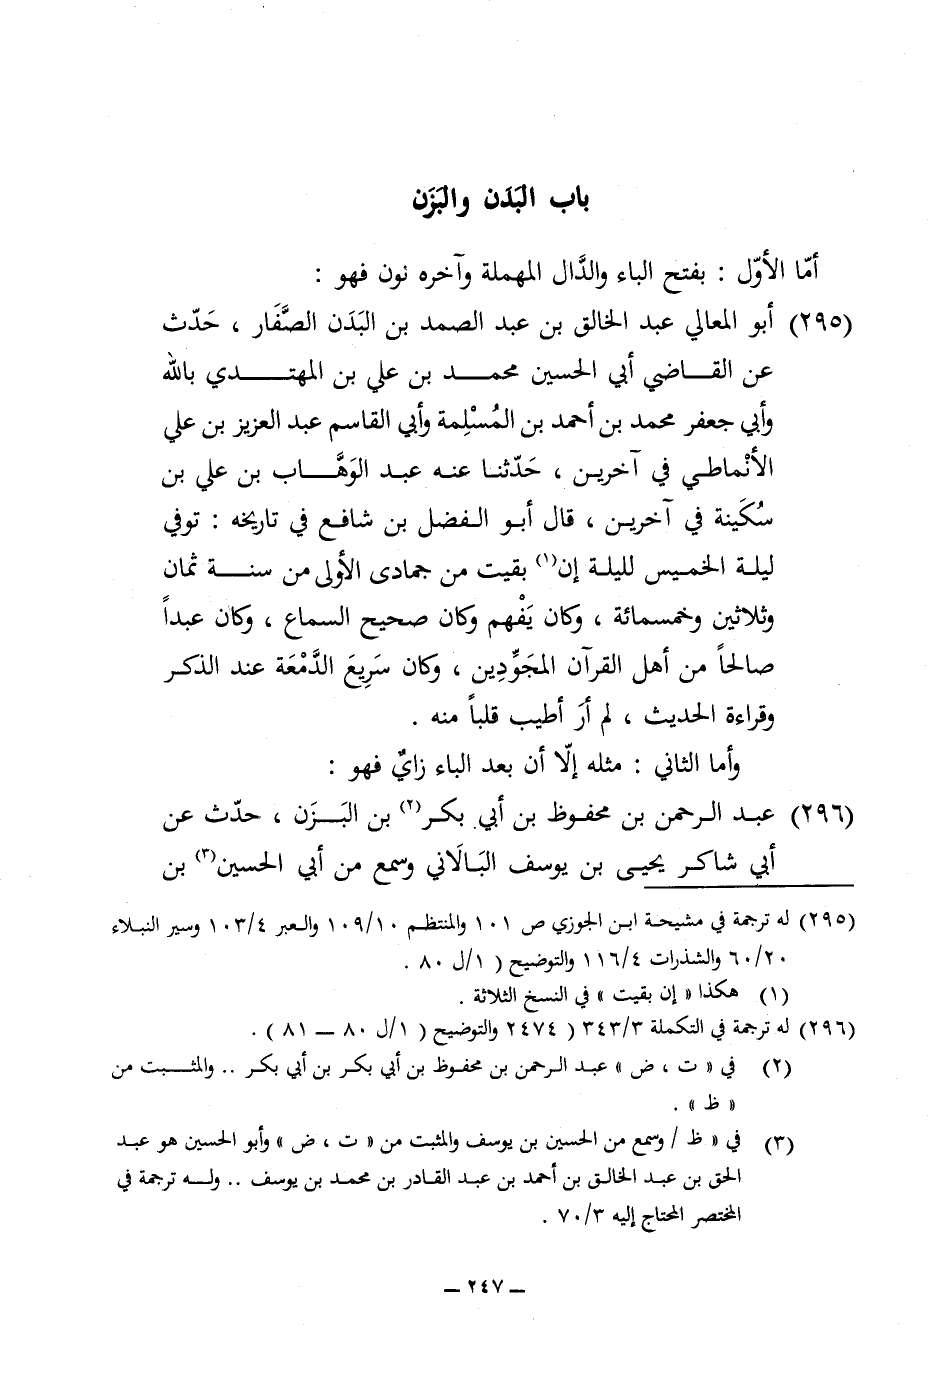 باب البَدَن والبَزَن
أمّا الأوّل : بفتح الباء والدَّال المهملة وآخره نون فهو :
(٢٩٥) أبو المعالي عبد الخالق بن عبد الصمد بن البَدَن الصَّفَّار ، حَدّث
عن القـاضي أبي الحسين محمـد بن علي بن المهتـدي بالله
وأبي جعفر محمد بن أحمد بن المُسْلِمة وأبي القاسم عبد العزيز بن علي
الأنْماطي في آخرين ، حَدّثنا عنه عبد الوَهَّاب بن علي بن
سُكَينة في آخرين ، قال أبو الفضل بن شافع في تاريخه : توفي
ليلة الخميس لليلة إن(١) بقيت من جمادى الأولى من سنة ثمان
وثلاثين وخمسمائة ، وكان يَفْهم وكان صحيح السماع ، وكان عبداً
صالحاً من أهل القرآن المجَوِّدين ، وكان سَرِيعَ الدَّمْعَة عند الذكر
وقراءة الحديث ، لم أرَ أطيب قلباً منه .
وأما الثاني : مثله إلّا أن بعد الباء زايٌ فهو :
(٢٩٦) عبد الرحمن بن محفوظ بن أبي بكر(٢) بن البَزَن ، حدّث عن
أبي شاكر يحيى بن يوسف البَالَاني وسمع من أبي الحسين(٣) بن
(٢٩٥) له ترجمة في مشيخة ابن الجوزي ص ١٠١ والمنتظم ١٠٩/١٠ والعبر ١٠٣/٤ وسير النبلاء
٦٠/٢٠ والشذرات ١١٦/٤ والتوضيح ( ١/ل ٨٠ .
(١) هكذا « إن بقيت » في النسخ الثلاثة .
(٢٩٦) له ترجمة في التكملة ٣٤٣/٣ ( ٢٤٧٤ والتوضيح ( ١/ل ٨٠ — ٨١ ) .
(٢) في « ت ، ض » عبد الرحمن بن محفوظ بن أبي بكر بن أبي بكر .. والمثبت من
« ظ » .
(٣) في « ظ / وسمع من الحسين بن يوسف والمثبت من « ت ، ض » وأبو الحسين هو عبد
الحق بن عبد الخالق بن أحمد بن عبد القادر بن محمد بن يوسف .. وله ترجمة في
المختصر المحتاج إليه ٧٠/٣ .
— ٢٤٧ —